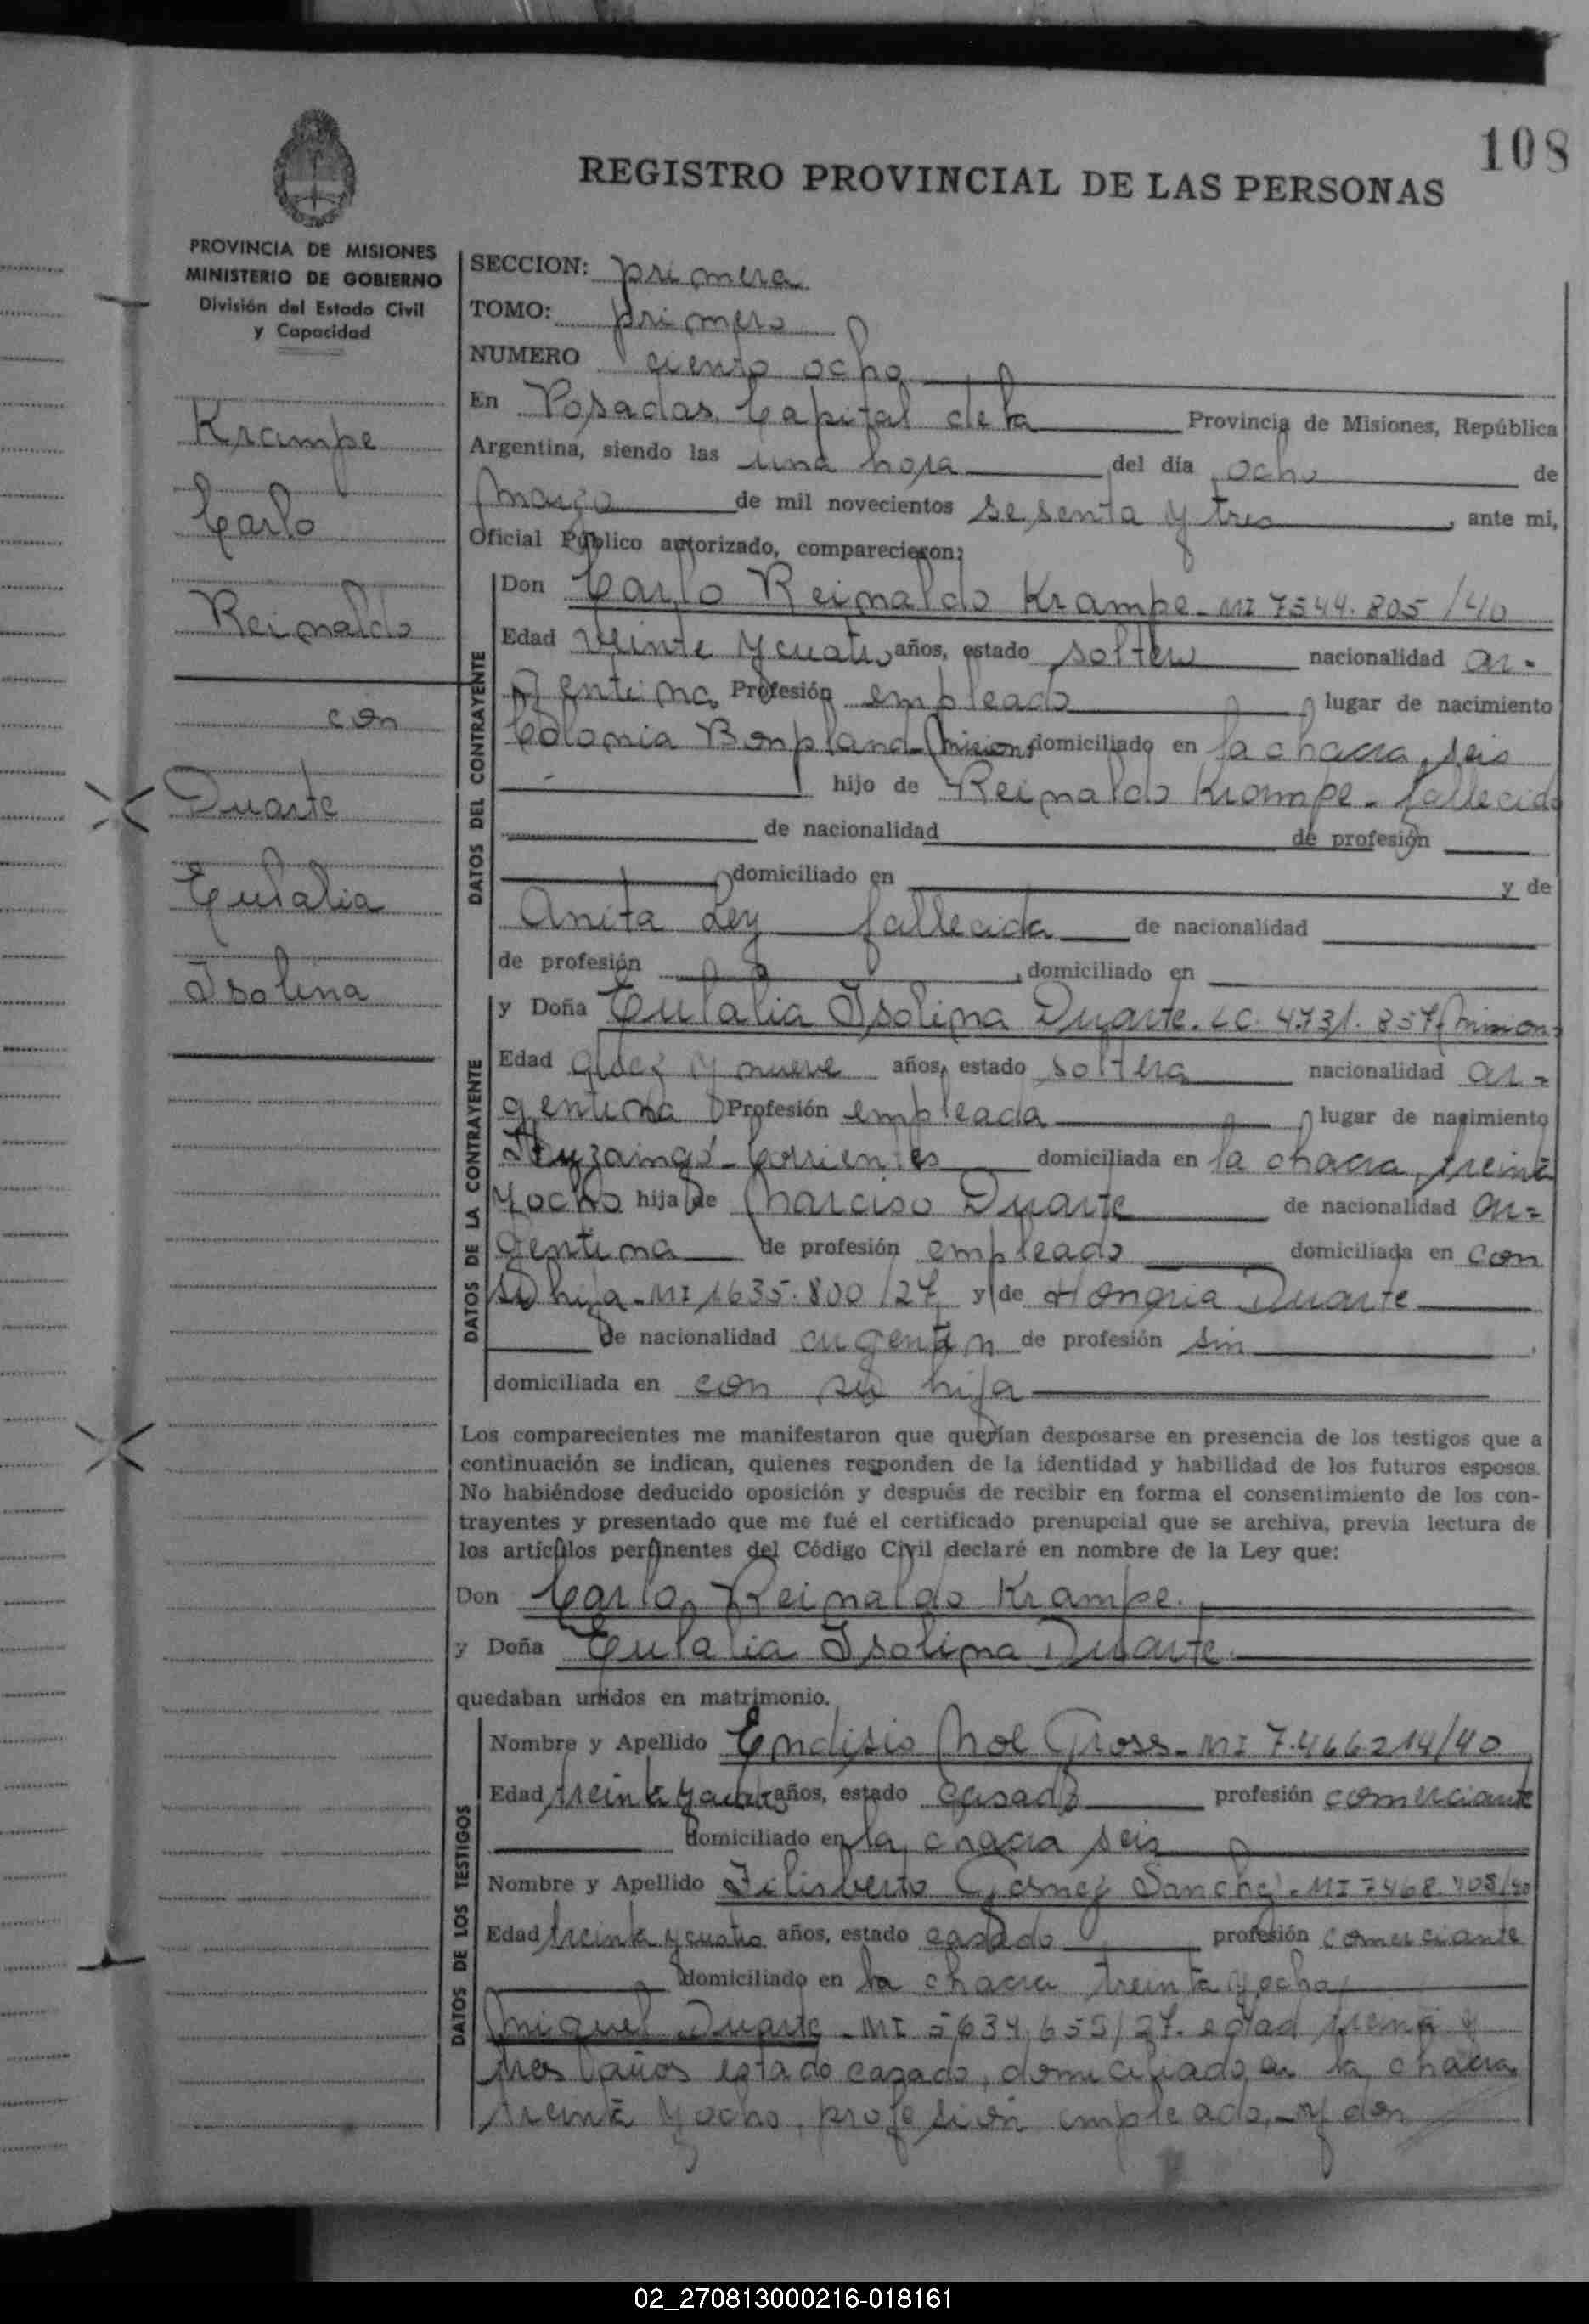 108
REGISTRO PROVINCIAL DE LAS PERSONAS
PROVINCIA DE MISIONES
MINISTERIO DE GOBIERNO
División del Estado Civil
y Capacidad
Krampe
Carlo
Reinaldo
con
Duarte
Eulalia
Isolina
SECCION: primera
TOMO: primero
NUMERO ciento ocho
En Posadas Capital de la Provincia de Misiones, República
Argentina, siendo las una hora del día ocho de
marzo de mil novecientos sesenta y tres, ante mi,
Oficial Público autorizado, comparecieron:
DATOS DEL CONTRAYENTE
Don Carlo Reinaldo Krampe - MI 7544.805/40
Edad veinte y cuatro años, estado soltero nacionalidad ar-
gentina Profesión empleado lugar de nacimiento
Colonia Bonpland - Misiones domiciliado en la chacra seis
hijo de Reinaldo Krampe - fallecido
de nacionalidad de profesión
domiciliado en y de
Anita Ley fallecida de nacionalidad
de profesión , domiciliado en
DATOS DE LA CONTRAYENTE
y Doña Eulalia Isolina Duarte. LC. 4.731.857 Misiones
Edad diez y nueve años, estado soltera nacionalidad ar-
gentina Profesión empleada lugar de nacimiento
Ituzaingó - Corrientes domiciliada en la chacra treinta
y ocho hija de Narciso Duarte de nacionalidad ar-
gentina de profesión empleado domiciliada en con
su hija - MI 1635.800/27 y de Honoria Duarte
de nacionalidad argentin de profesión sin ,
domiciliada en con su hija
Los comparecientes me manifestaron que querían desposarse en presencia de los testigos que a
continuación se indican, quienes responden de la identidad y habilidad de los futuros esposos.
No habiéndose deducido oposición y después de recibir en forma el consentimiento de los con-
trayentes y presentado que me fué el certificado prenupcial que se archiva, previa lectura de
los artículos pertinentes del Código Civil declaré en nombre de la Ley que:
Don Carlo Reinaldo Krampe.
y Doña Eulalia Isolina Duarte.
quedaban unidos en matrimonio.
DATOS DE LOS TESTIGOS
Nombre y Apellido Gross - MI 7.466214/40
Edad treinta y años, estado casado profesión comerciante
domiciliado en la chacra seis
Nombre y Apellido Filisberto Gomez Sanchez - MI 7468.408/40
Edad treinta y cuatro años, estado casado profesión comerciante
domiciliado en la chacra treinta y ocho
Miguel Duarte - MI 5634.655/27. edad treinta y
tres años estado casado, domiciliado en la chacra
treinta y ocho, profesión empleado, - y don
02_270813000216-018161